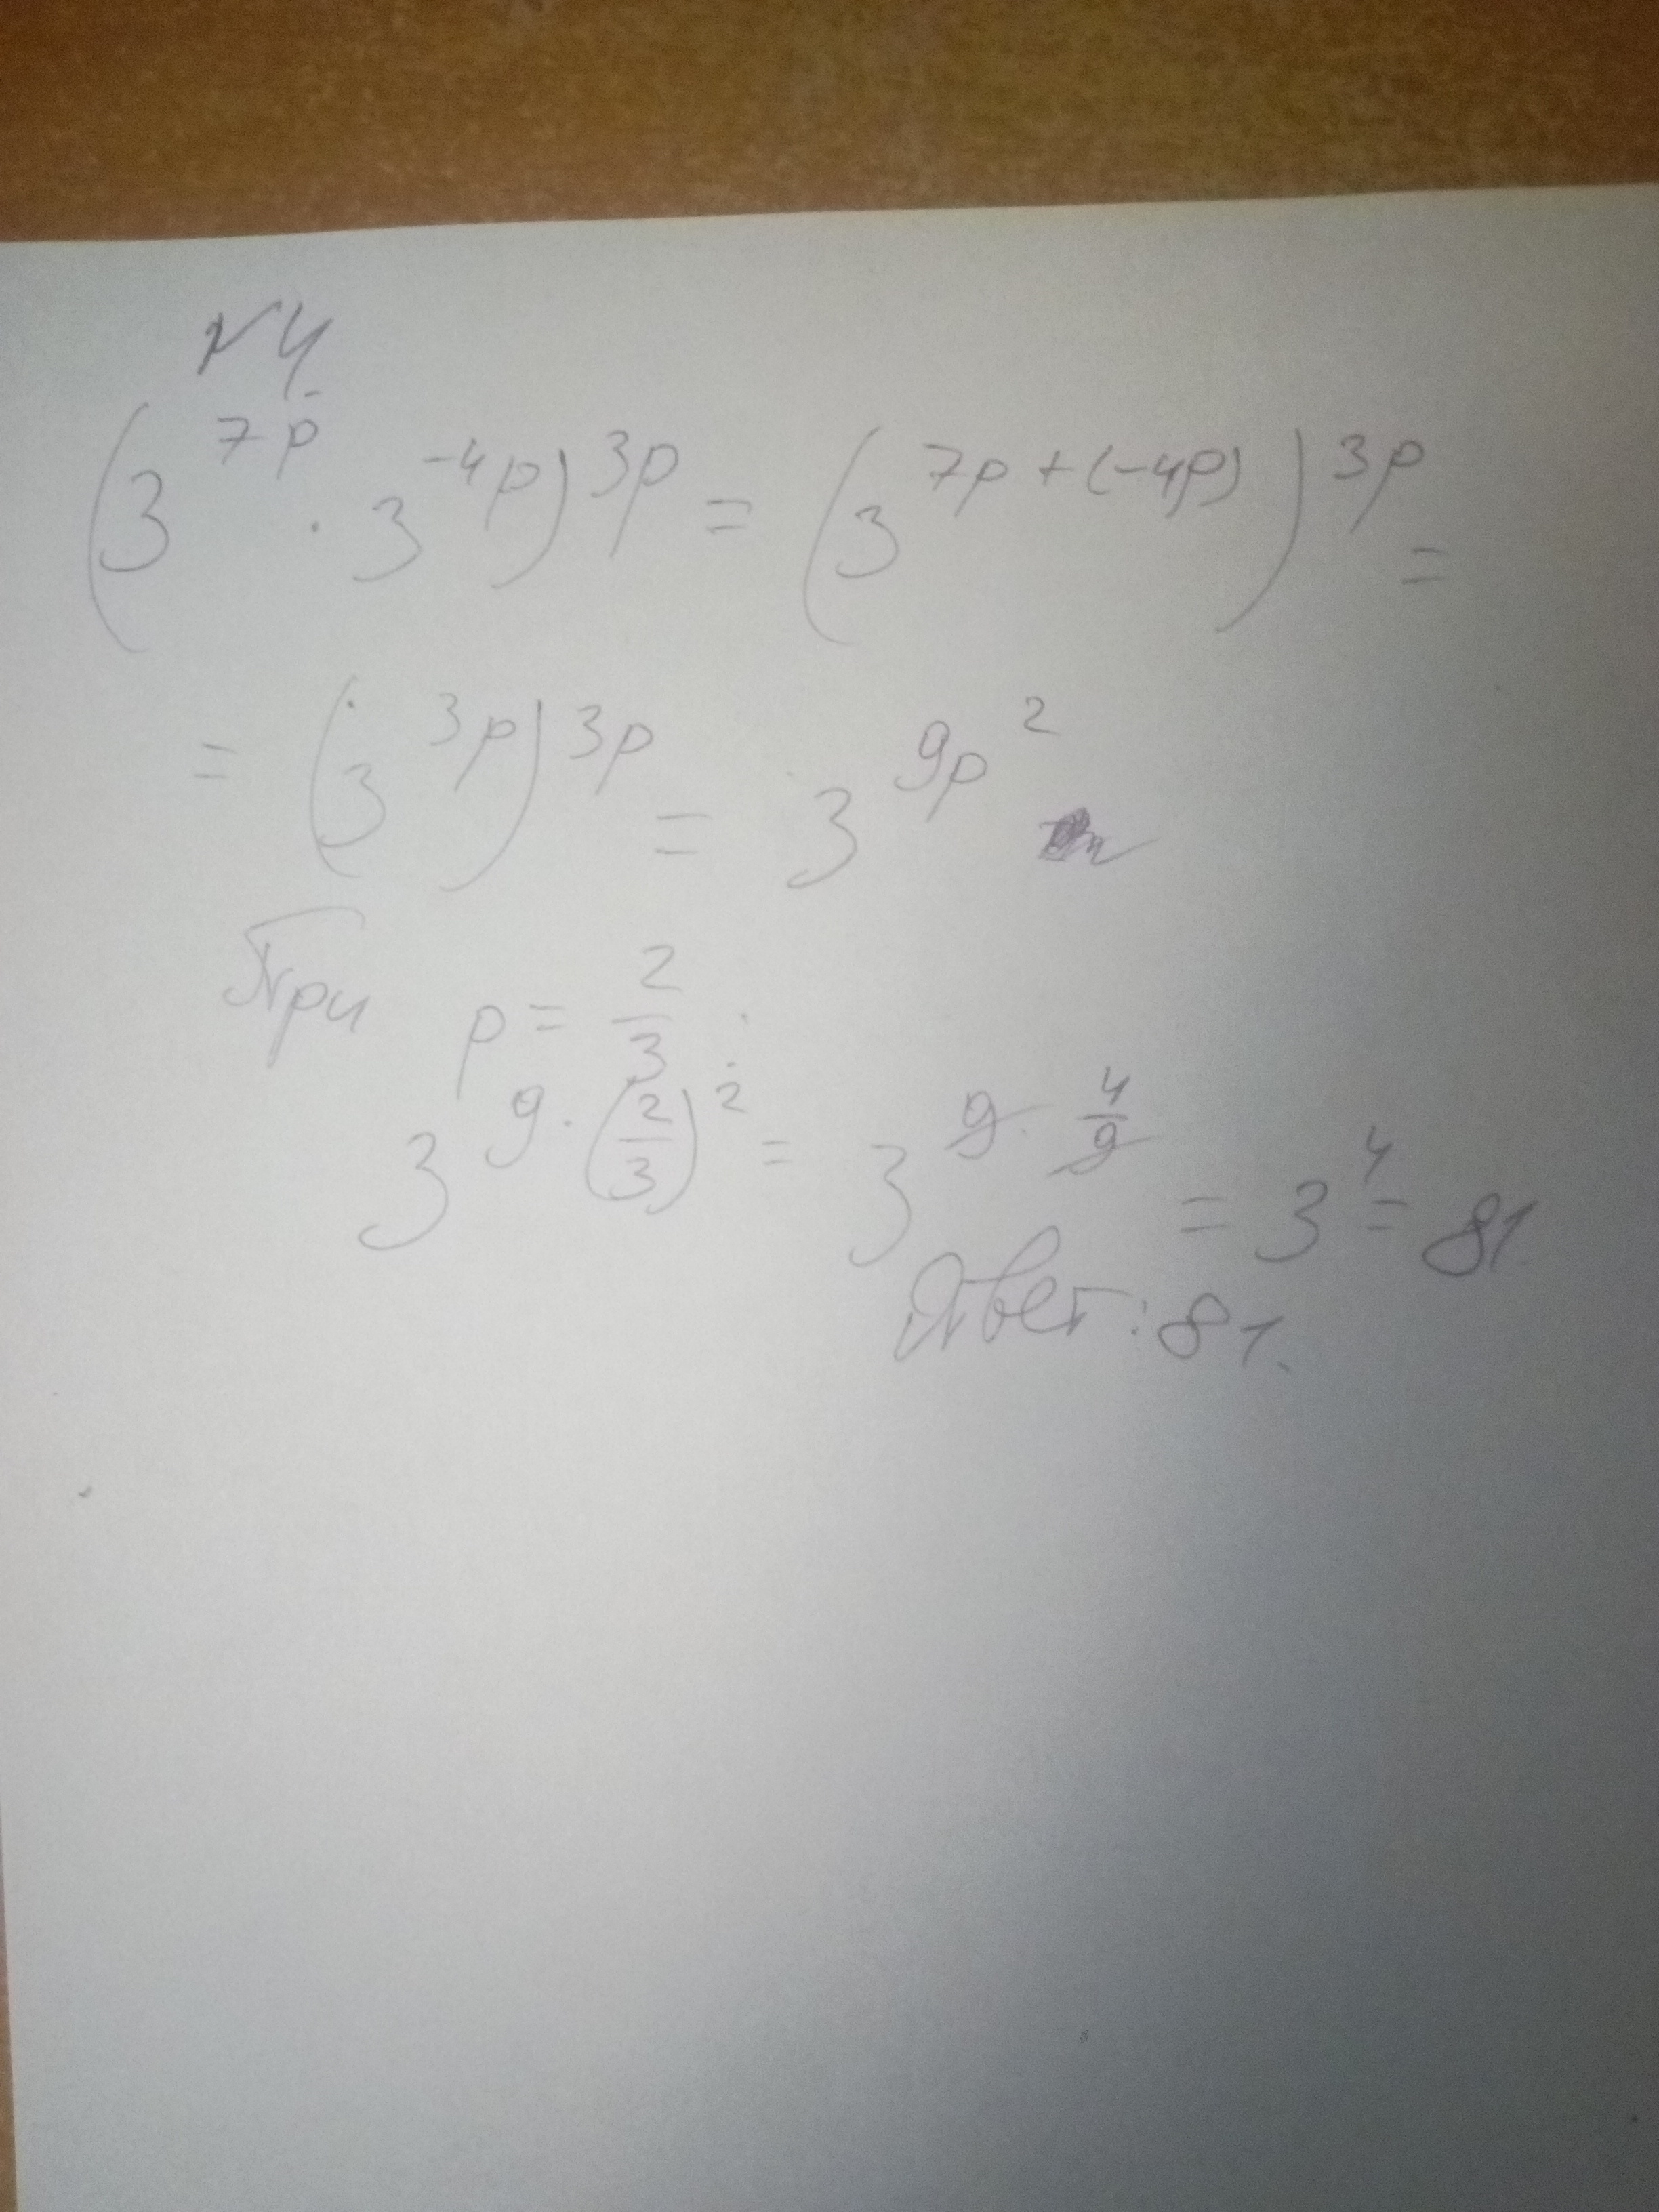 №4
(3^{7p} · 3^{-4p})^{3p} = (3^{7p+(-4p)})^{3p} =
= (3^{3p})^{3p} = 3^{9p^2}
При p = 2/3 :
3^{9·(2/3)^2} = 3^{9·4/9} = 3^4 = 81.
Ответ: 81.